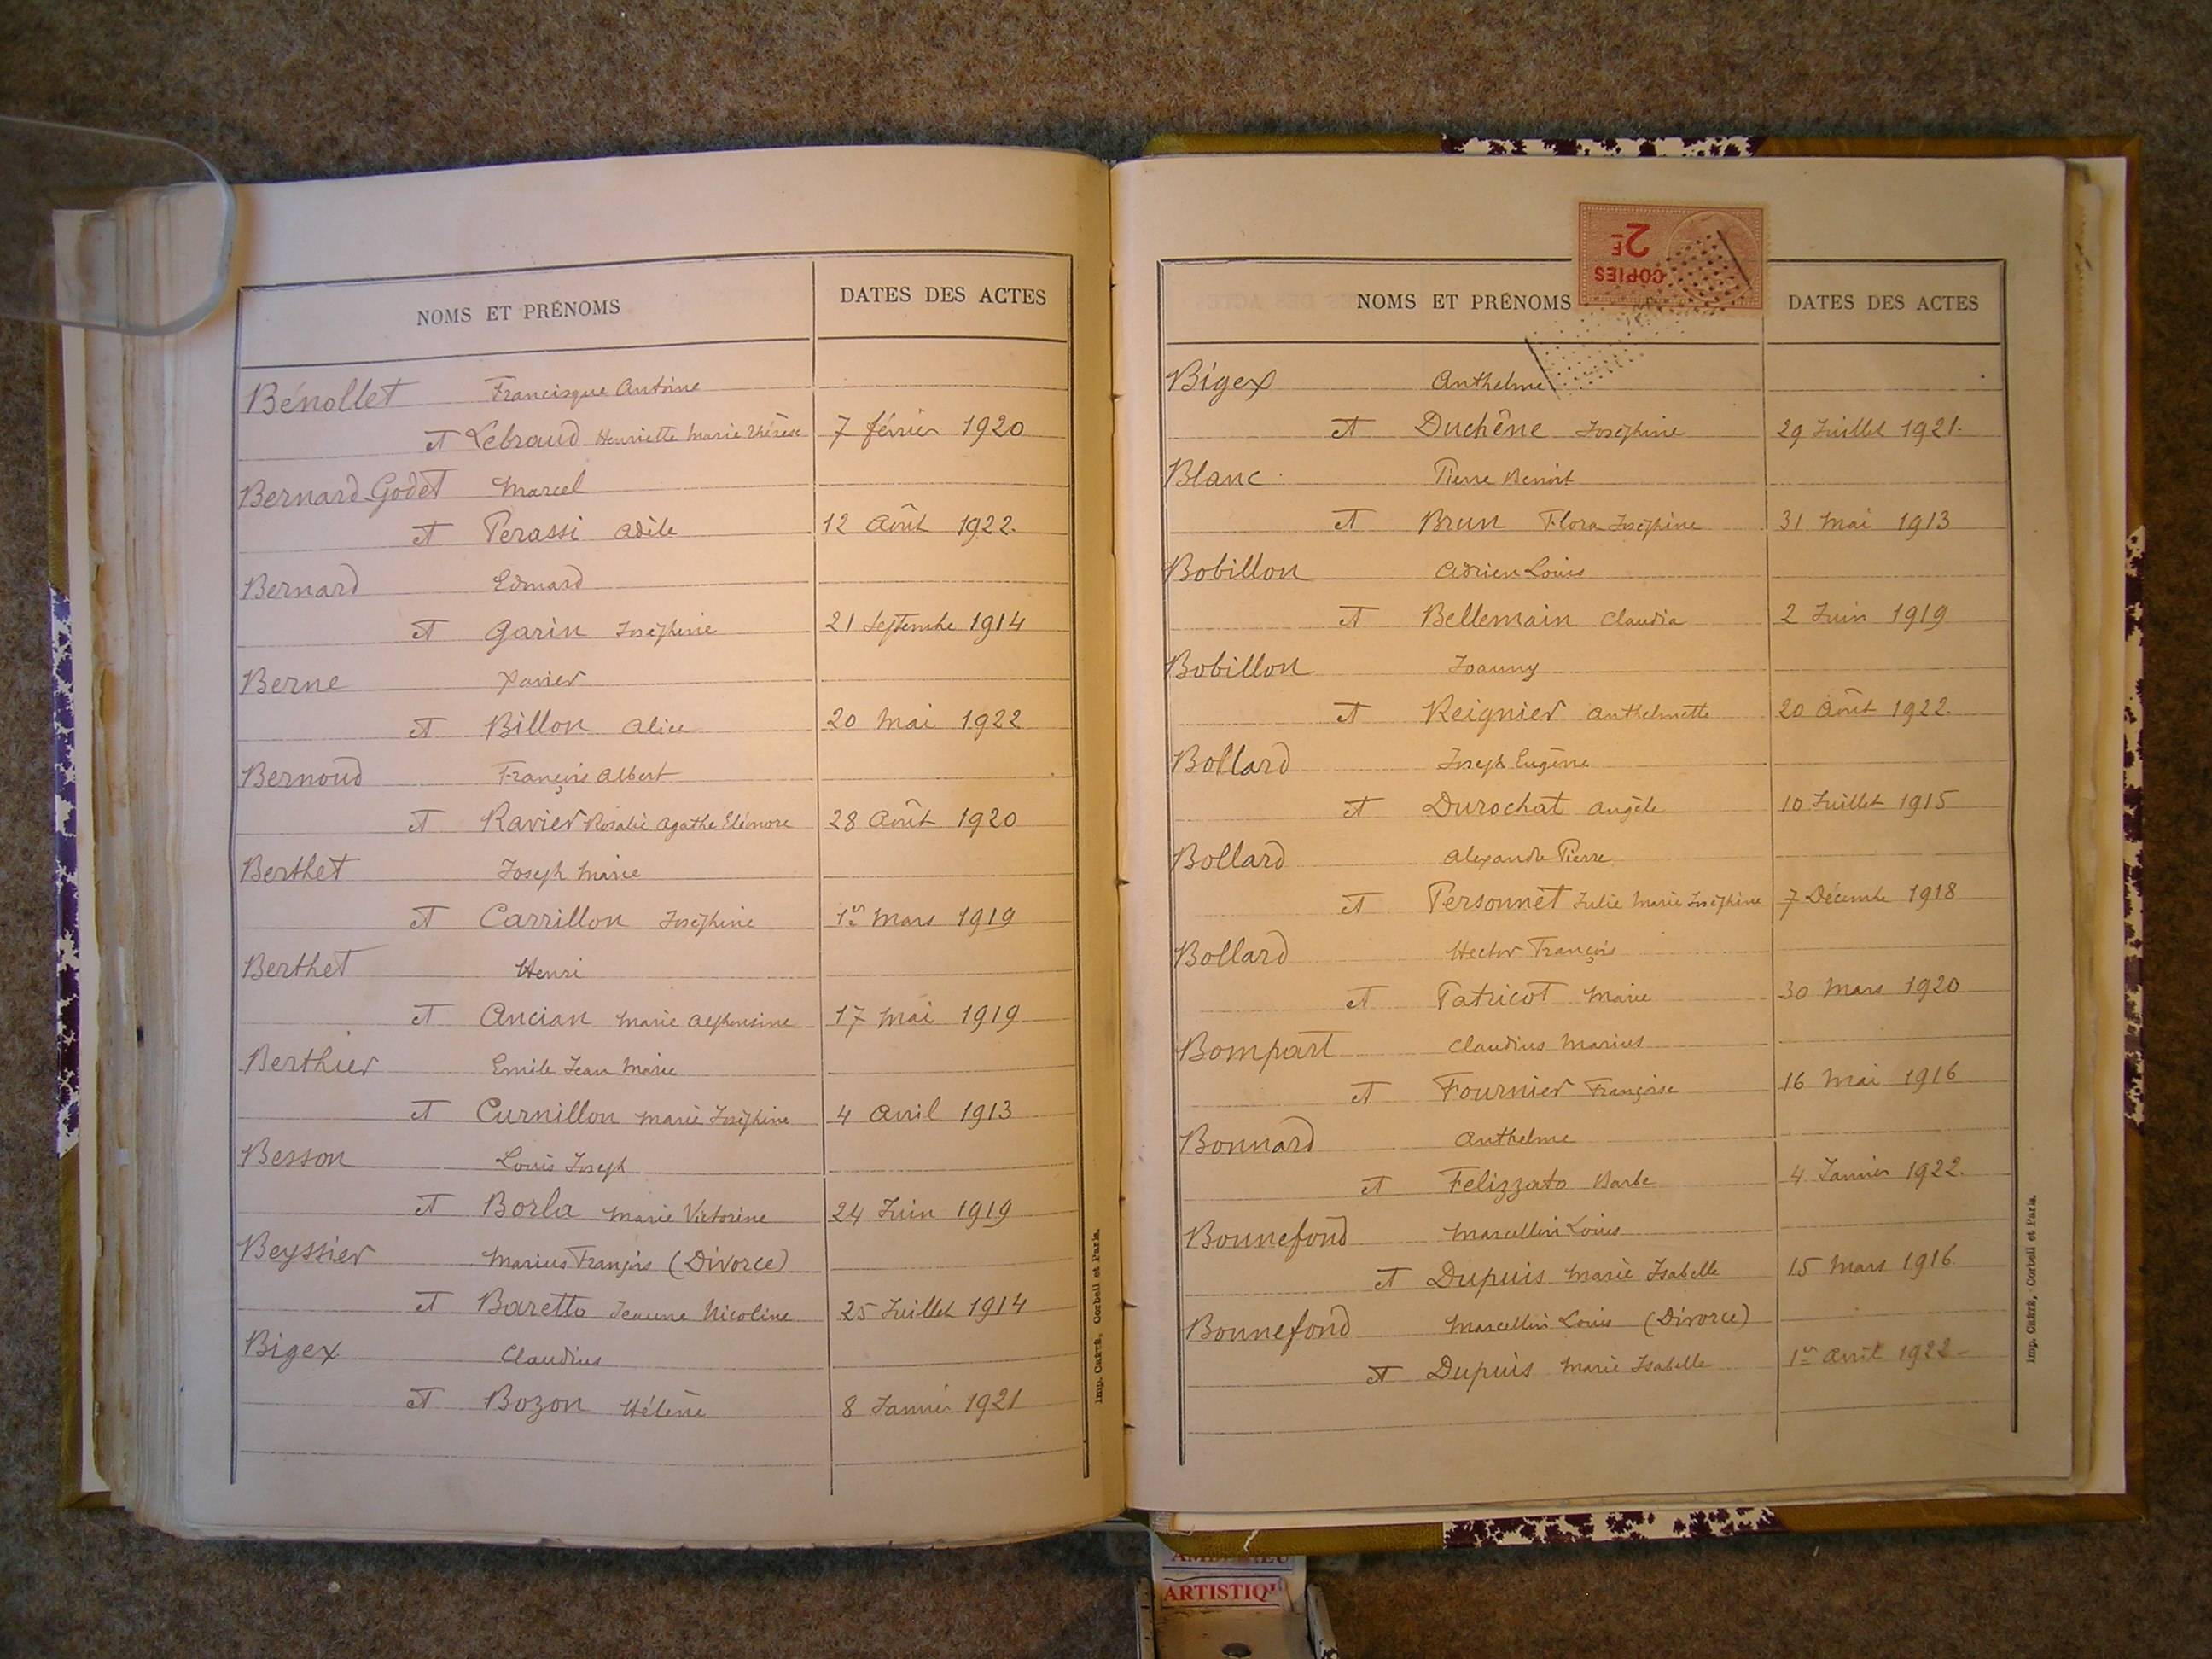 NOMS ET PRÉNOMS DATES DES ACTES
Bénollet Francisque Antoine
et Lebraud Henriette Marie Thérèse 7 février 1920
Bernard-Godet Marcel
et Perassi Adèle 12 Août 1922.
Bernard Edouard
et Garin Joséphine 21 Septembre 1914
Berne Xavier
et Billon Alice 20 Mai 1922
Bernoud François Albert
et Ravier Rosalie Agathe Eléonore 28 Août 1920
Berthet Joseph Marie
et Carrillon Joséphine 1er Mars 1919
Berthet Henri
et Ancian Marie Alphonsine 17 Mai 1919
Berthier Emile Jean Marie
et Curnillon Marie Joséphine 4 Avril 1913
Besson Louis Joseph
et Borla Marie Victorine 24 Juin 1919
Beyssier Marius François (Divorce)
et Baretto Jeanne Nicoline 25 Juillet 1914
Bigex Claudius
et Bozon Hélène 8 Janvier 1921
Imp. Corbeil et Paris.
COPIES
2F
NOMS ET PRÉNOMS DATES DES ACTES
Bigex Anthelme
et Duchêne Joséphine 29 Juillet 1921.
Blanc Pierre Benoit
et Brun Flora Joséphine 31 Mai 1913
Bobillon Adrien Louis
et Bellemain Claudia 2 Juin 1919
Bobillon Joanny
et Reignier Anthelmette 20 Août 1922.
Bollard Joseph Eugène
et Durochat Angèle 10 Juillet 1915
Bollard Alexandre Pierre
et Personnet Julie Marie Joséphine 7 Décembre 1918
Bollard Hector François
et Patricot Marie 30 Mars 1920
Bompart Claudius Marius
et Fournier Françoise 16 Mai 1916
Bonnard Anthelme
et Felizzato Barbe 4 Janvier 1922.
Bonnefond Marcellin Louis
et Dupuis Marie Isabelle 15 Mars 1916.
Bonnefond Marcellin Louis (Divorce)
et Dupuis Marie Isabelle 1er Avril 1922
Imp. Corbeil et Paris.
ARTISTIQ